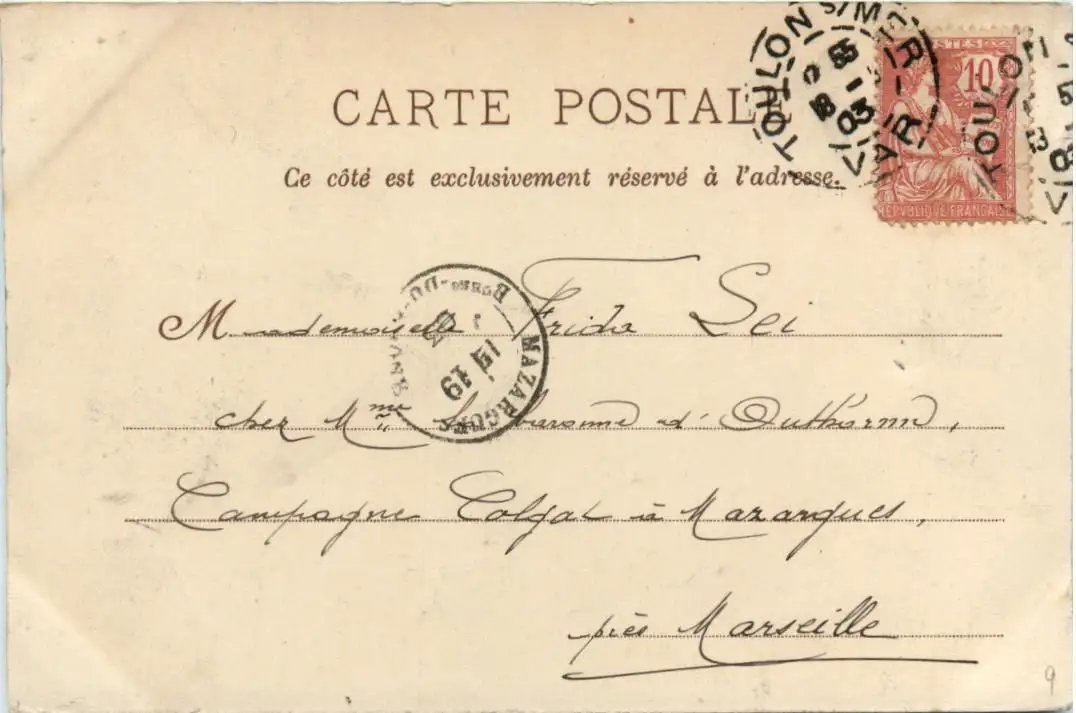 CARTE POSTALE
Ce côté est exclusivement réservé à l'adresse.
TOULON S/MER
VAR
18
03
POSTES
10
REPUBLIQUE FRANÇAISE
TOULON
BOUCHES-DU-RHONE
MAZARGUES
19
Mademoiselle Frida Lei
chez Mme la baronne d'
Campagne Colgat à Mazargues,
près Marseille
9